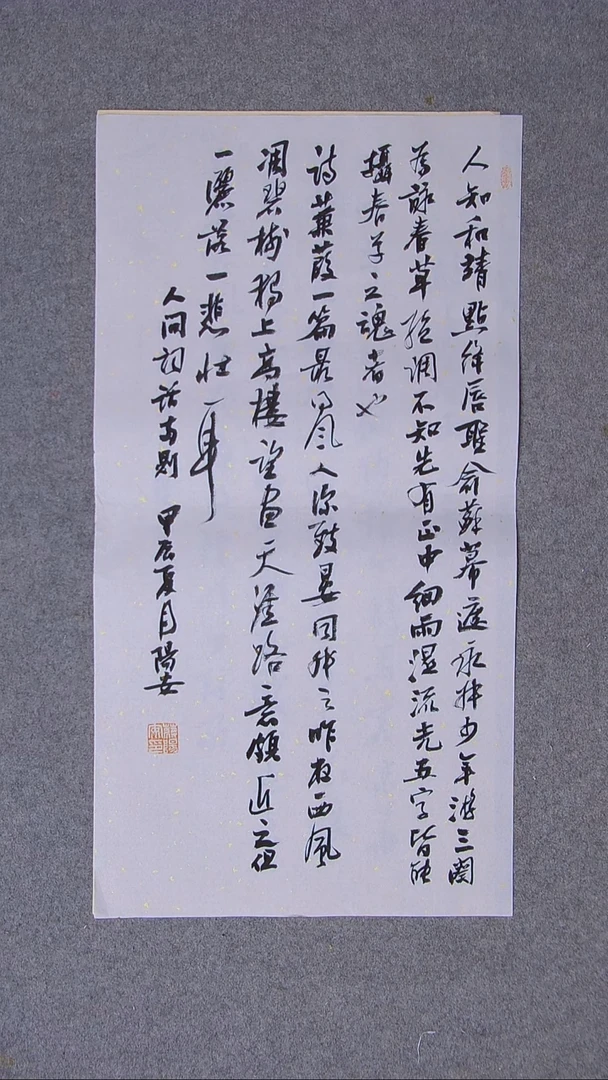 人知和靖點絳唇聖俞蘇幕遮永叔少年游三闋
為詠春草絕調不知先有正中細雨濕流光五字皆能
攝春草之魂者也
詩蒹葭一篇最得風人深致晏同叔之昨夜西風
凋碧樹獨上高樓望盡天涯路意頗近之但
一灑落一悲壯耳
人间词话兩則 甲辰夏月陽安